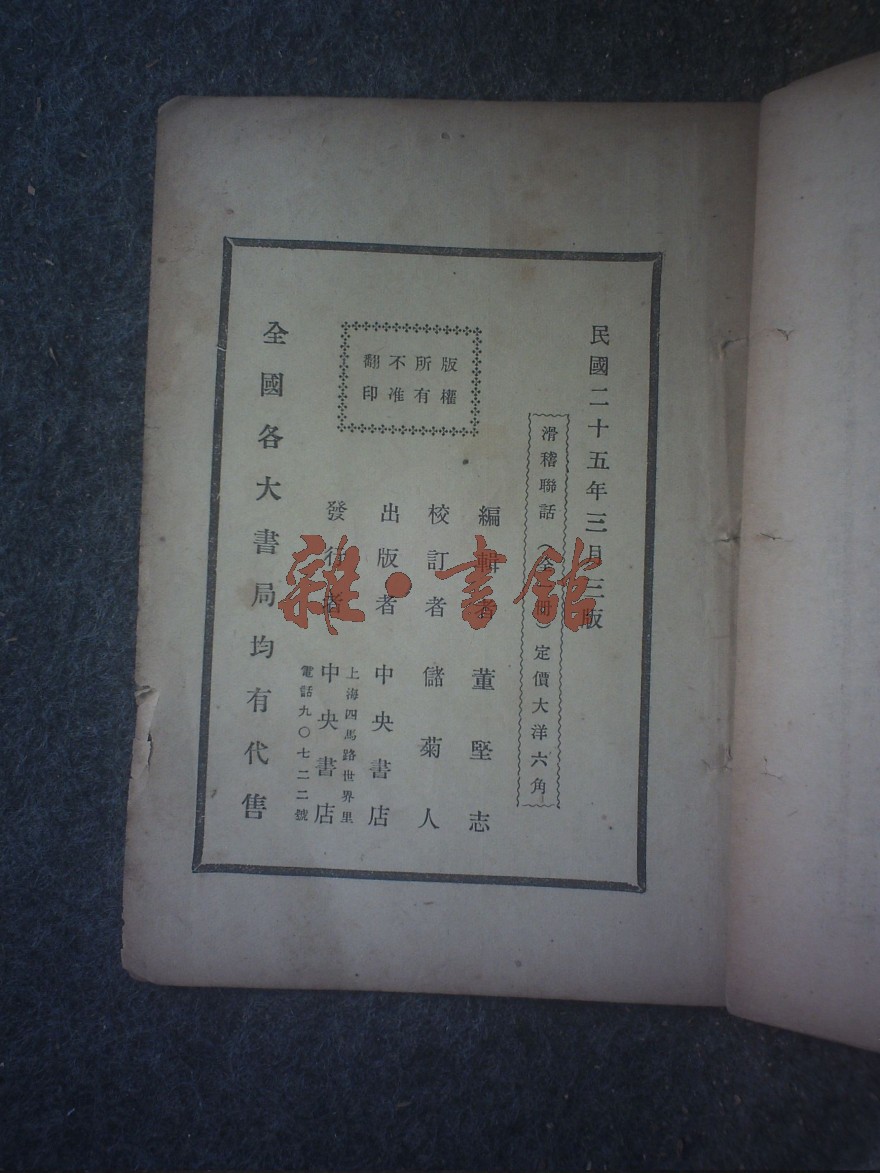 民國二十五年三月三版
滑稽聯話（全一冊）定價大洋六角
編輯者 董堅志
校訂者 儲菊人
出版者 中央書店
上海四馬路世界里
發行者 中央書店
電話九〇七二二號
版權
所有
不准
翻印
全國各大書局均有代售
雜·書館